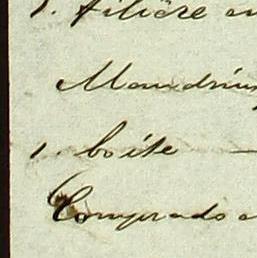 1. filière
Mandrins
1. boîte —
Comprado a